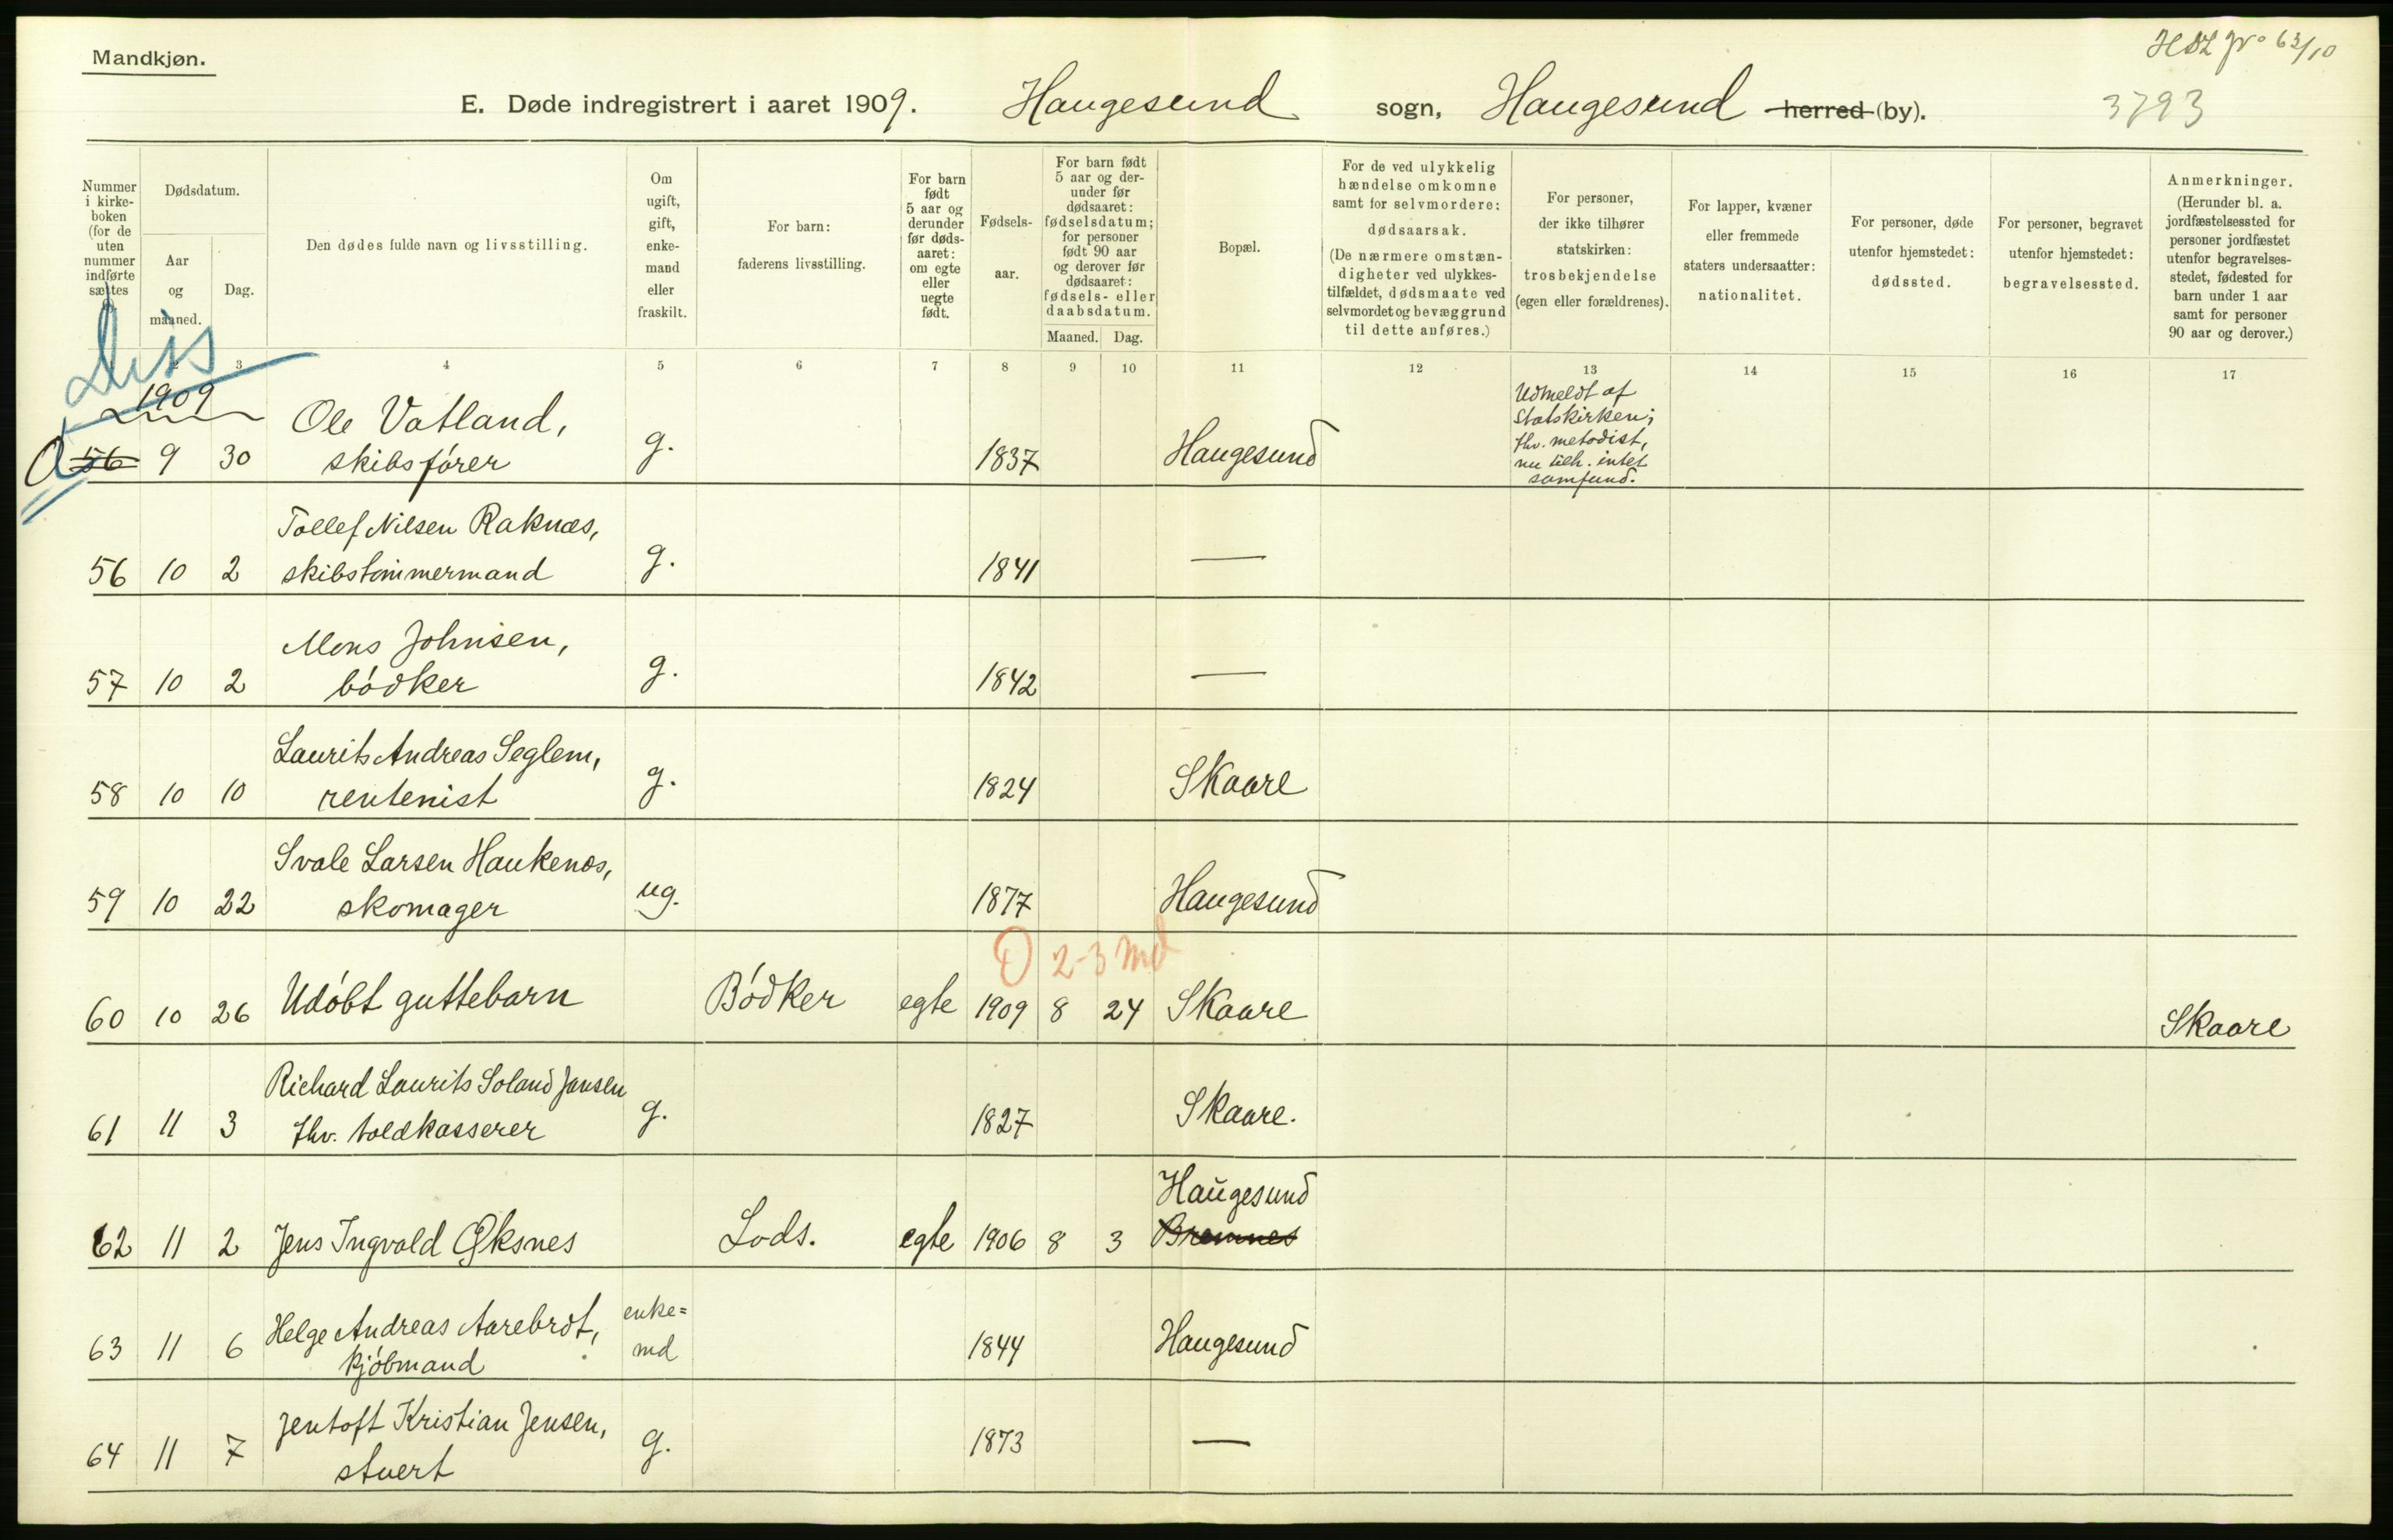 Mandkjøn.
E. Døde indregistrert i aaret 1909. Haugesund sogn, Haugesund herred (by).
3793
Nummer i kirke-boken (for de uten nummer indførte sættes
Dødsdatum.
Aar og maaned.
Dag.
Den dødes fulde navn og livsstilling.
Om ugift, gift, enke-mand eller fraskilt.
For barn: faderens livsstilling.
For barn født 5 aar og derunder før døds-aaret: om egte eller uegte født.
Fødsels-aar.
For barn født 5 aar og der-under før dødsaaret: fødselsdatum; for personer født 90 aar og derover før dødsaaret: fødsels- eller daabsdatum.
Maaned.
Dag.
Bopæl.
For de ved ulykkelig hændelse omkomne samt for selvmordere: dødsaarsak. (De nærmere omstæn-digheter ved ulykkes-tilfældet, dødsmaate ved selvmordet og bevæggrund til dette anføres.)
For personer, der ikke tilhører statskirken: trosbekjendelse (egen eller forældrenes).
For lapper, kvæner eller fremmede staters undersaatter: nationalitet.
For personer, døde utenfor hjemstedet: dødssted.
For personer, begravet utenfor hjemstedet: begravelsessted.
Anmerkninger. (Herunder bl. a. jordfæstelsessted for personer jordfæstet utenfor begravelses-stedet, fødested for barn under 1 aar samt for personer 90 aar og derover.)
2 3 4 5 6 7 8 9 10 11 12 13 14 15 16 17
Diss
1909
56 9 30 Ole Vatland, skibsfører g. 1837 Haugesund Udmeldt af Statskirken; fhv. metodist, nu tilh. intet samfund.
56 10 2 Tollef Nilsen Raknæs, skibstømmermand g. 1841 —
57 10 2 Mons Johnsen, bódker g. 1842 —
58 10 10 Laurits Andreas Seglem, rentenist g. 1824 Skaare
59 10 22 Svale Larsen Haukenæs, skomager ug. 1877 Haugesund
2-3 md
60 10 26 Udóbt guttebarn Bódker egte 1909 8 24 Skaare Skaare
61 11 3 Richard Laurits Soland Jansen fhv. toldkasserer g. 1827 Skaare.
62 11 2 Jens Ingvald Øksnes Lods. egte 1906 8 3 Haugesund Bremnes
63 11 6 Helge Andreas Aarebrot, kjóbmand enke=md 1844 Haugesund
64 11 7 Jentoft Kristian Jensen, stuert g. 1873 —